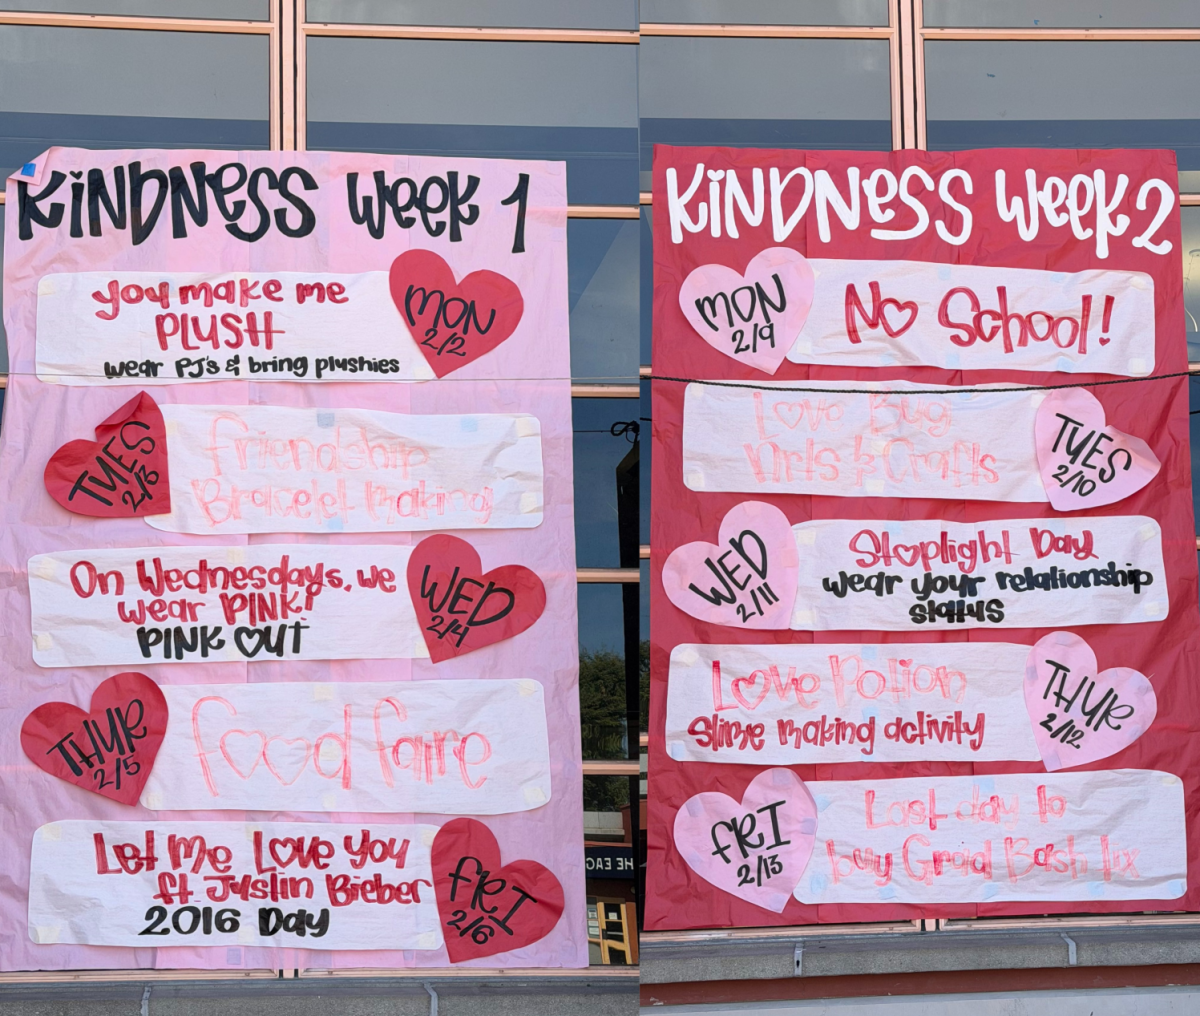 KiNDNeSS Week 1
you make me
PLUSH
wear PJ's & bring plushies
MON
2/2
TUES
2/3
friendship
Bracelet Making
On Wednesdays, we
wear PINK!
PINK OUT
WED
2/4
THUR
2/5
food faire
Let Me Love You
ft Justin Bieber
2016 Day
fRI
2/6
KiNDNeSS Week 2
MON
2/9
No School!
Love Bug
Arts & Crafts
TUES
2/10
WED
2/11
Stoplight Day
wear your relationship
status
Love Potion
Slime making activity
THUR
2/12
fRI
2/13
Last day to
buy Grad Bash tix
HE EAG